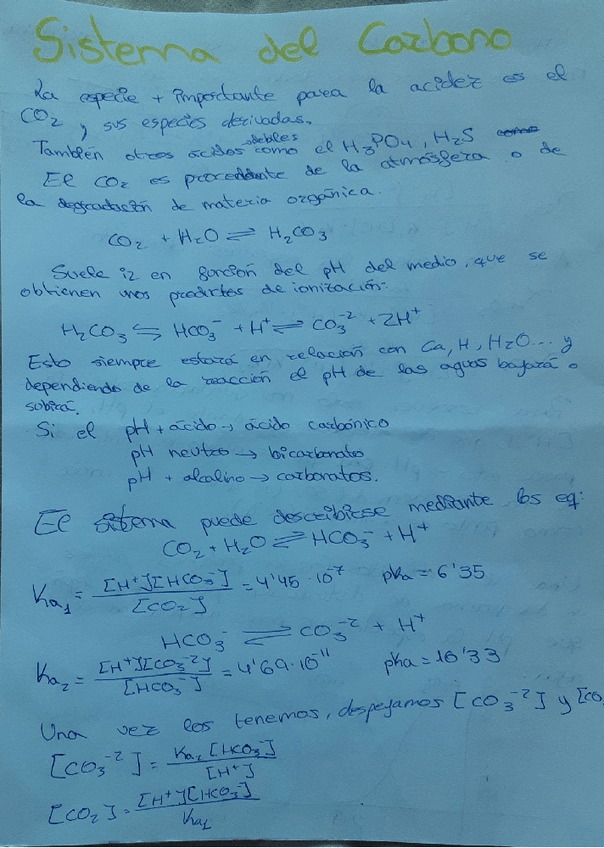 Sistema del Carbono
La especie + importante para la acidez es el
CO2 y sus especies derivadas.
También otros ácidos débiles como el H3PO4, H2S
El CO2 es procedente de la atmósfera o de
la degradación de materia orgánica.
CO2 + H2O ⇌ H2CO3
Suele ir en función del pH del medio, que se
obtienen unos productos de ionización:
H2CO3 ⇌ HCO3⁻ + H⁺ ⇌ CO3⁻² + 2H⁺
Esto siempre estará en relación con Ca, H, H2O... y
dependiendo de la reacción el pH de las aguas bajará o
subirá.
Si el pH + ácido → ácido carbónico
pH neutro → bicarbonato
pH + alcalino → carbonatos.
El sistema puede describirse mediante los eq:
CO2 + H2O ⇌ HCO3⁻ + H⁺
Ka1 = [H⁺][HCO3⁻] / [CO2] = 4'45·10⁻⁷ pKa = 6'35
HCO3⁻ ⇌ CO3⁻² + H⁺
Ka2 = [H⁺][CO3⁻²] / [HCO3⁻] = 4'69·10⁻¹¹ pKa = 10'33
Una vez los tenemos, despejamos [CO3⁻²] y [CO
[CO3⁻²] = Ka2 [HCO3⁻] / [H⁺]
[CO2] = [H⁺][HCO3⁻] / Ka1